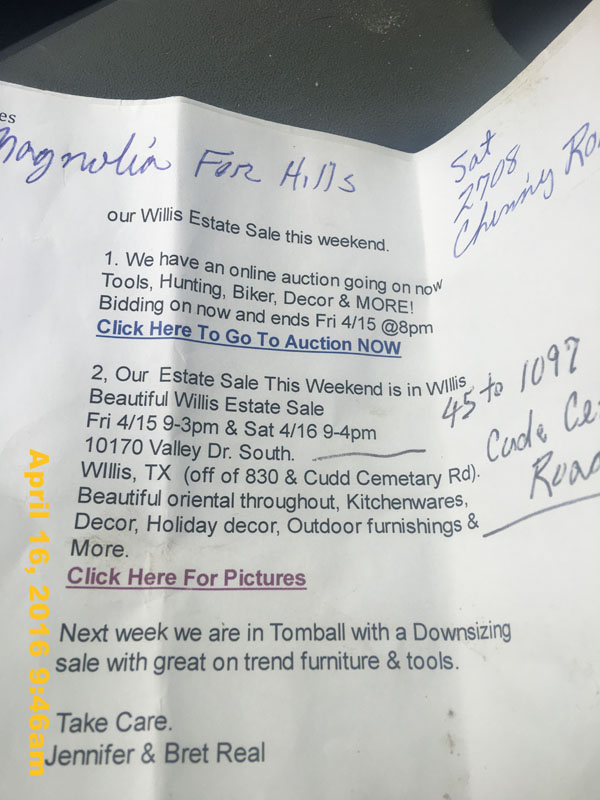 es
Magnolia For Hills
Sat
2708
Chimny
our Willis Estate Sale this weekend.
1. We have an online auction going on now
Tools, Hunting, Biker, Decor & MORE!
Bidding on now and ends Fri 4/15 @8pm
Click Here To Go To Auction NOW
2, Our Estate Sale This Weekend is in WIllis
Beautiful Willis Estate Sale
Fri 4/15 9-3pm & Sat 4/16 9-4pm
10170 Valley Dr. South.
WIllis, TX (off of 830 & Cudd Cemetary Rd).
Beautiful oriental throughout, Kitchenwares,
Decor, Holiday decor, Outdoor furnishings &
More.
Click Here For Pictures
45 to 1097
Cude Ce
Road
Next week we are in Tomball with a Downsizing
sale with great on trend furniture & tools.
Take Care.
Jennifer & Bret Real
April 16, 2016 9:46am